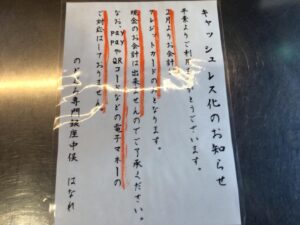 キャッシュレス化のお知らせ
平素よりご利用ありがとうございます。
2月よりお会計は
クレジットカードのみとなります。
現金のお会計は出来ませんのでご了承ください。
なお、PayPayやQRコードなどの電子マネーの
ご対応はしておりません。
のどぐろ専門銀座中俣 はなれ